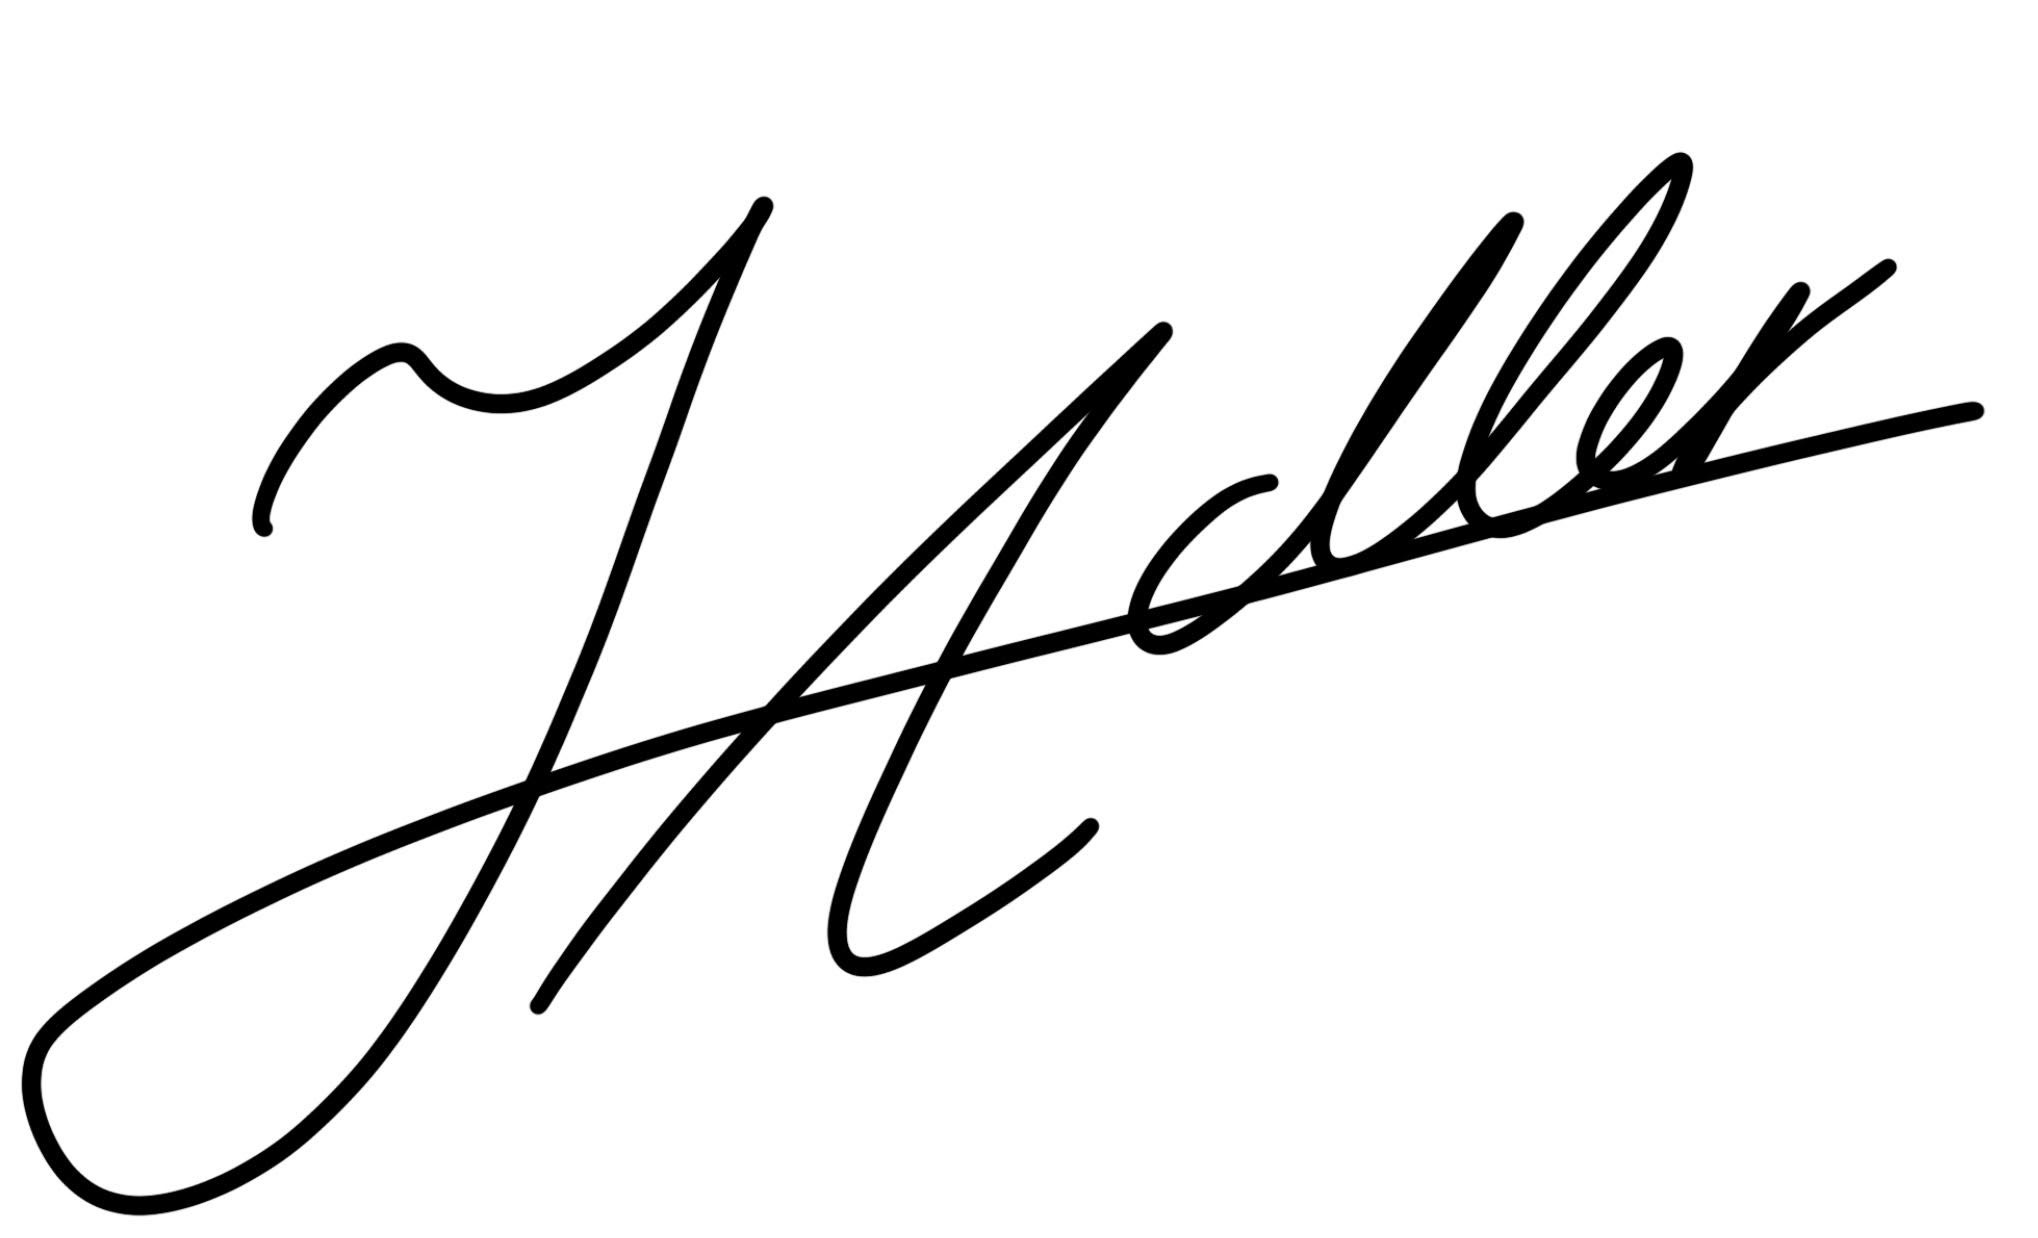 J Adler